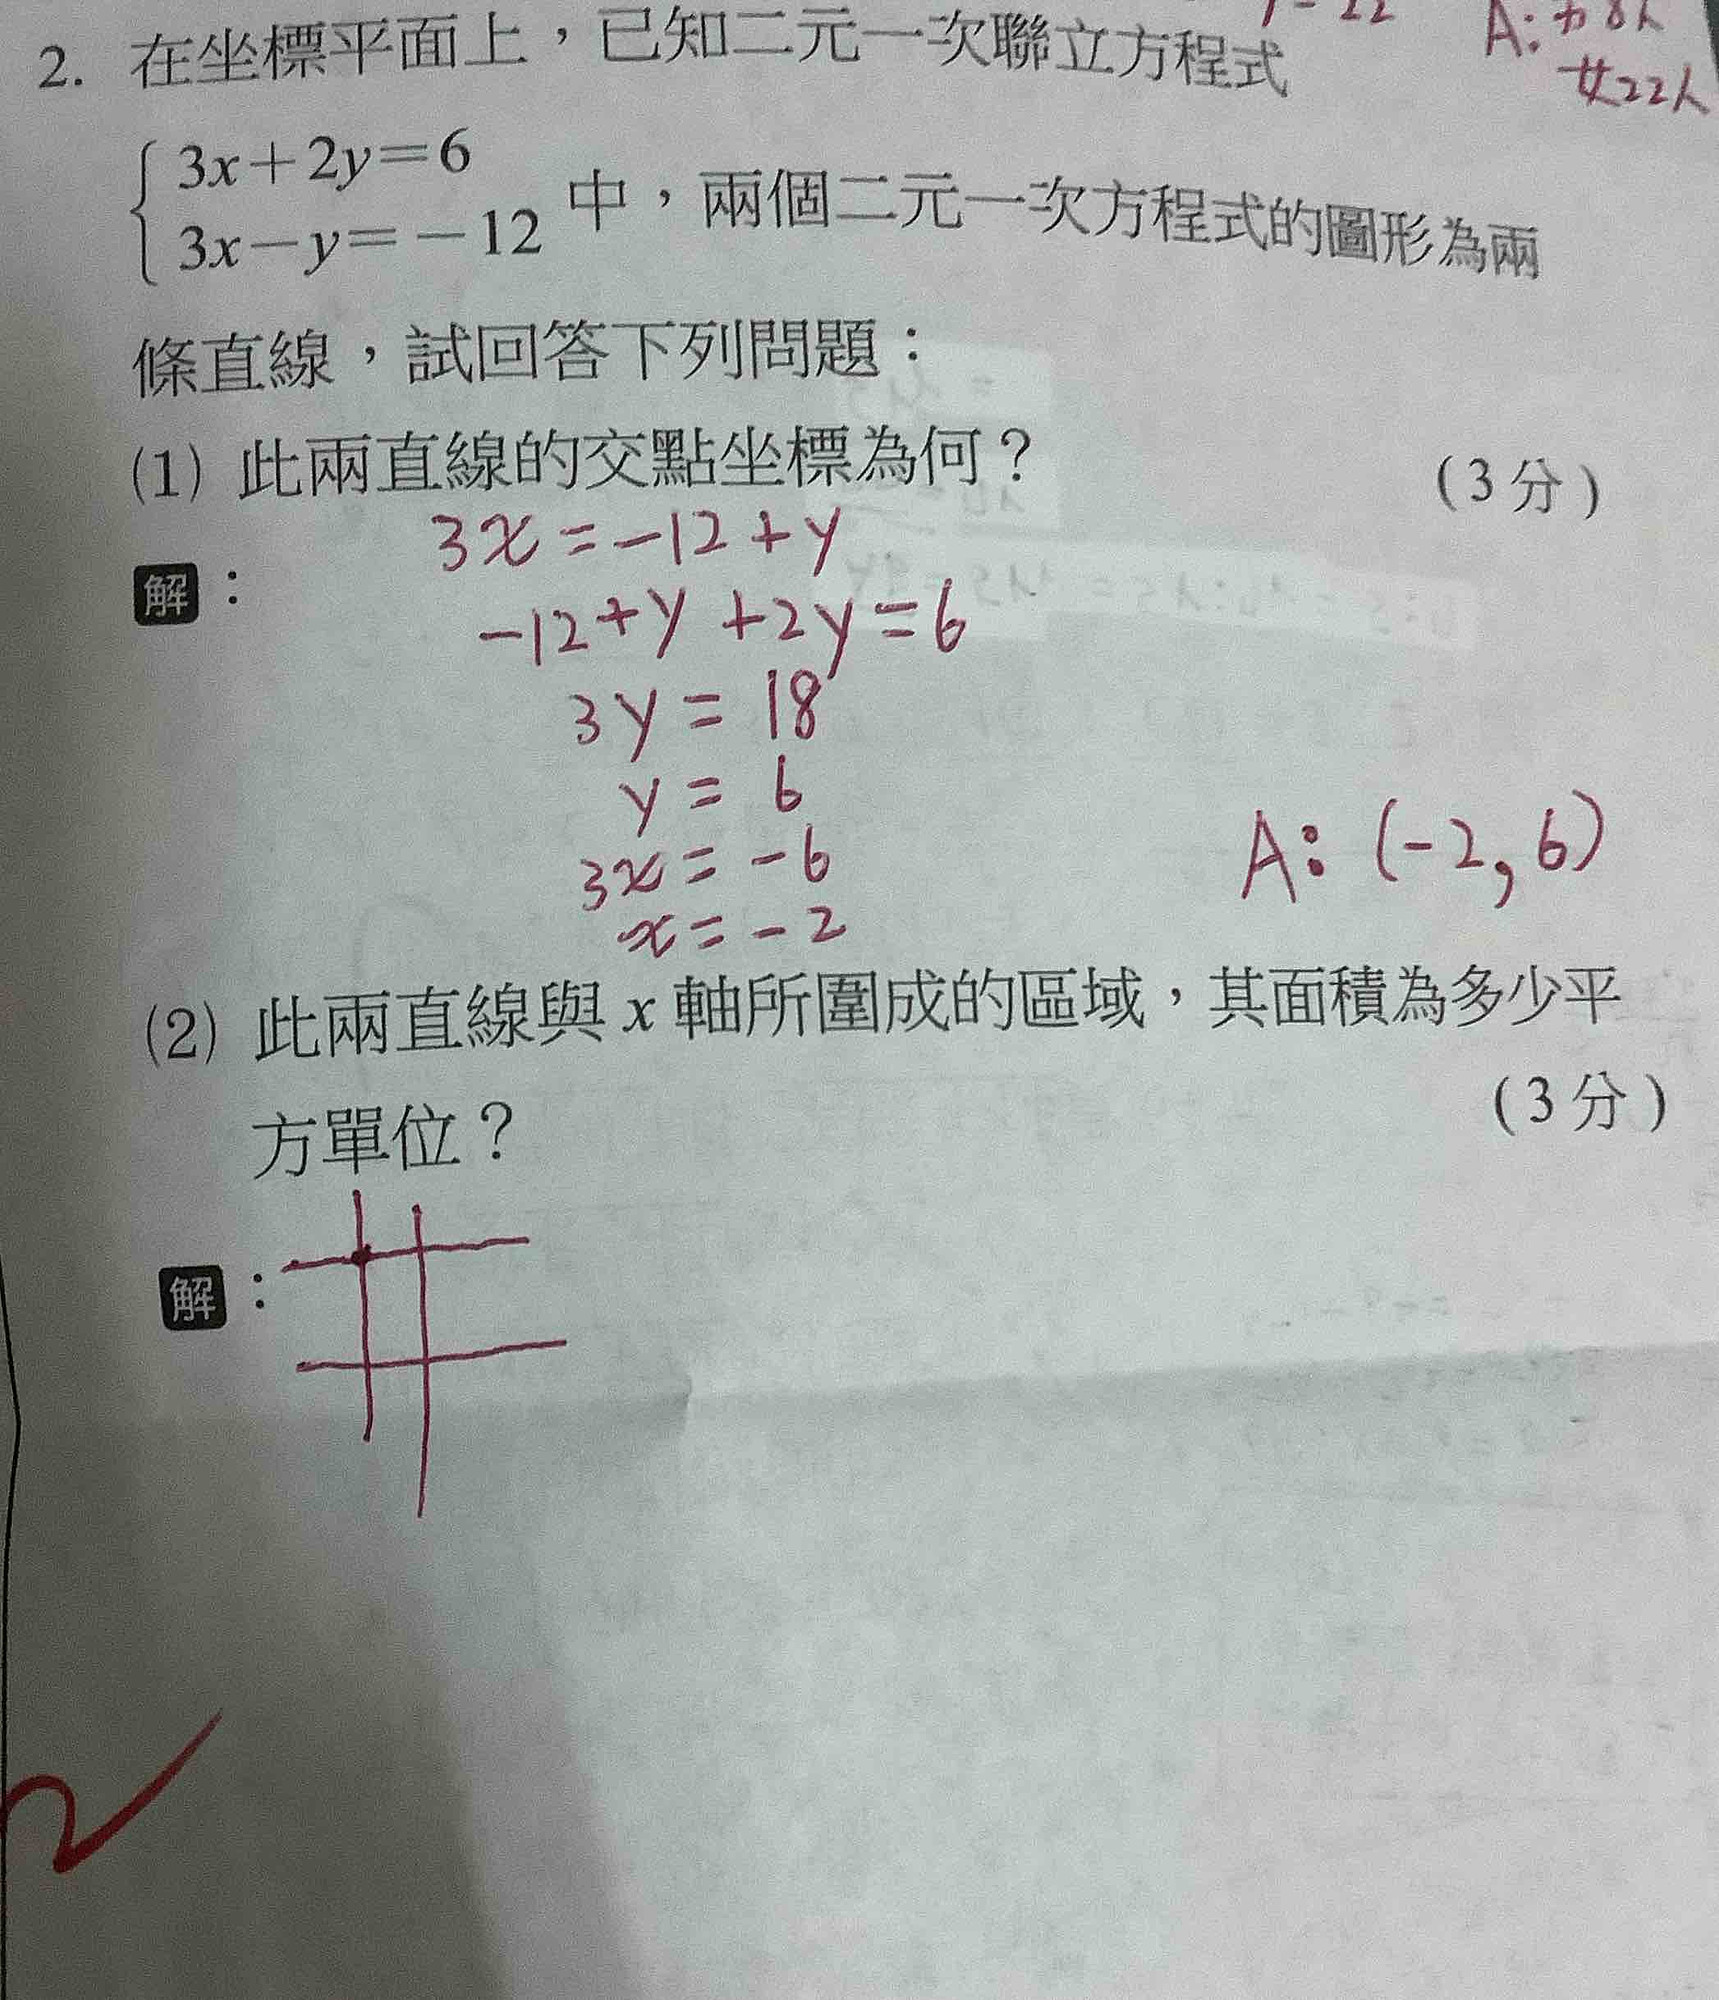 2. 在坐標平面上，已知二元一次聯立方程式
A: 8人
女22人
3x+2y=6
3x-y=-12
中，兩個二元一次方程式的圖形為兩
條直線，試回答下列問題：
(1) 此兩直線的交點坐標為何？
(3分)
解：
3x=-12+y
-12+y+2y=6
3y=18
y=6
3x=-6
x=-2
A:(-2,6)
(2) 此兩直線與x軸所圍成的區域，其面積為多少平
方單位？
(3分)
解：